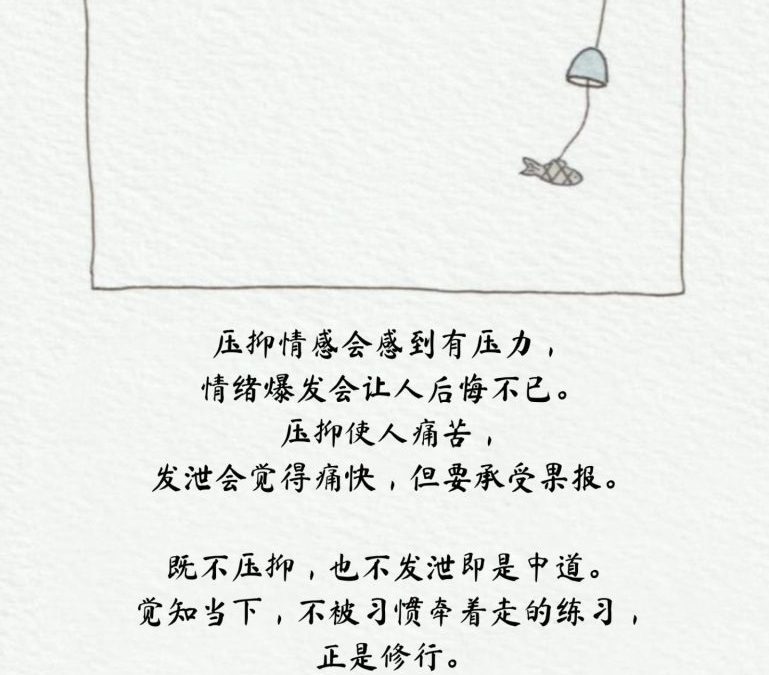 压抑情感会感到有压力，
情绪爆发会让人后悔不已。
压抑使人痛苦，
发泄会觉得痛快，但要承受果报。
既不压抑，也不发泄即是中道。
觉知当下，不被习惯牵着走的练习，
正是修行。